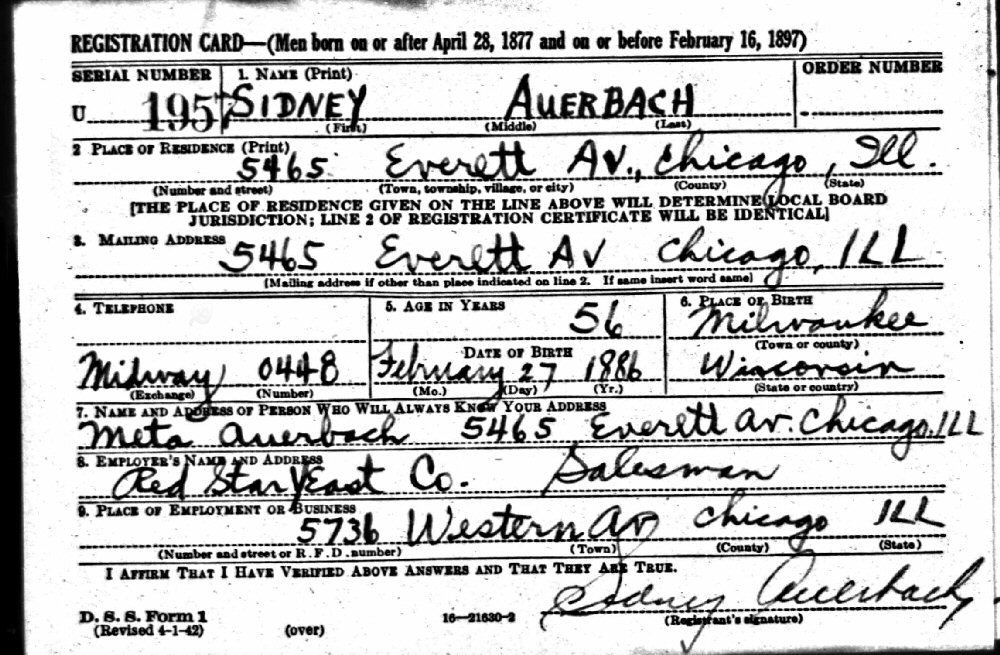 REGISTRATION CARD—(Men born on or after April 28, 1877 and on or before February 16, 1897)
SERIAL NUMBER 1. NAME (Print) ORDER NUMBER
U 1957 SIDNEY AUERBACH
(First) (Middle) (Last)
2 PLACE OF RESIDENCE (Print)
5465 Everett AV., Chicago, Ill.
(Number and street) (Town, township, village, or city) (County) (State)
[THE PLACE OF RESIDENCE GIVEN ON THE LINE ABOVE WILL DETERMINE LOCAL BOARD
JURISDICTION; LINE 2 OF REGISTRATION CERTIFICATE WILL BE IDENTICAL]
3. MAILING ADDRESS
5465 Everett AV Chicago, ILL
[Mailing address if other than place indicated on line 2. If same insert word same]
4. TELEPHONE 5. AGE IN YEARS 6. PLACE OF BIRTH
56 Milwaukee
DATE OF BIRTH (Town or county)
Midway 0448 February 27 1886 Wisconsin
(Exchange) (Number) (Mo.) (Day) (Yr.) (State or country)
7. NAME AND ADDRESS OF PERSON WHO WILL ALWAYS KNOW YOUR ADDRESS
Meta Auerbach 5465 Everett Av. Chicago. ILL
8. EMPLOYER'S NAME AND ADDRESS
Red Star Yeast Co. Salesman
9. PLACE OF EMPLOYMENT OR BUSINESS
5736 Western Av Chicago ILL
(Number and street or R. F. D. number) (Town) (County) (State)
I AFFIRM THAT I HAVE VERIFIED ABOVE ANSWERS AND THAT THEY ARE TRUE.
Sidney Auerbach
D. S. S. Form 1 16—21630-2 (Registrant's signature)
(Revised 4-1-42) (over)